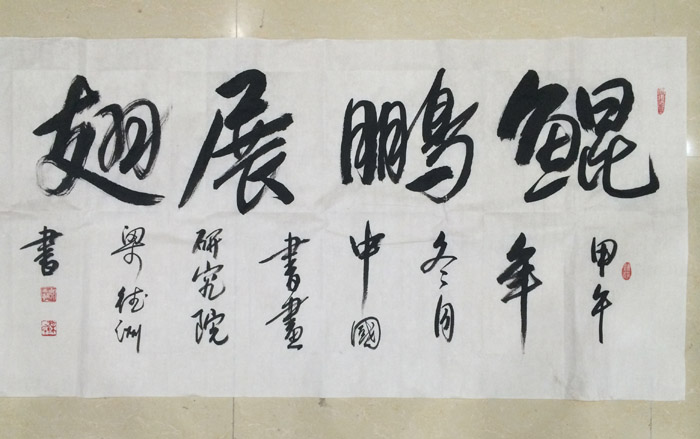 鲲鹏展翅
甲午
年
冬月
中國
書畫
研究院
梁德洲
書